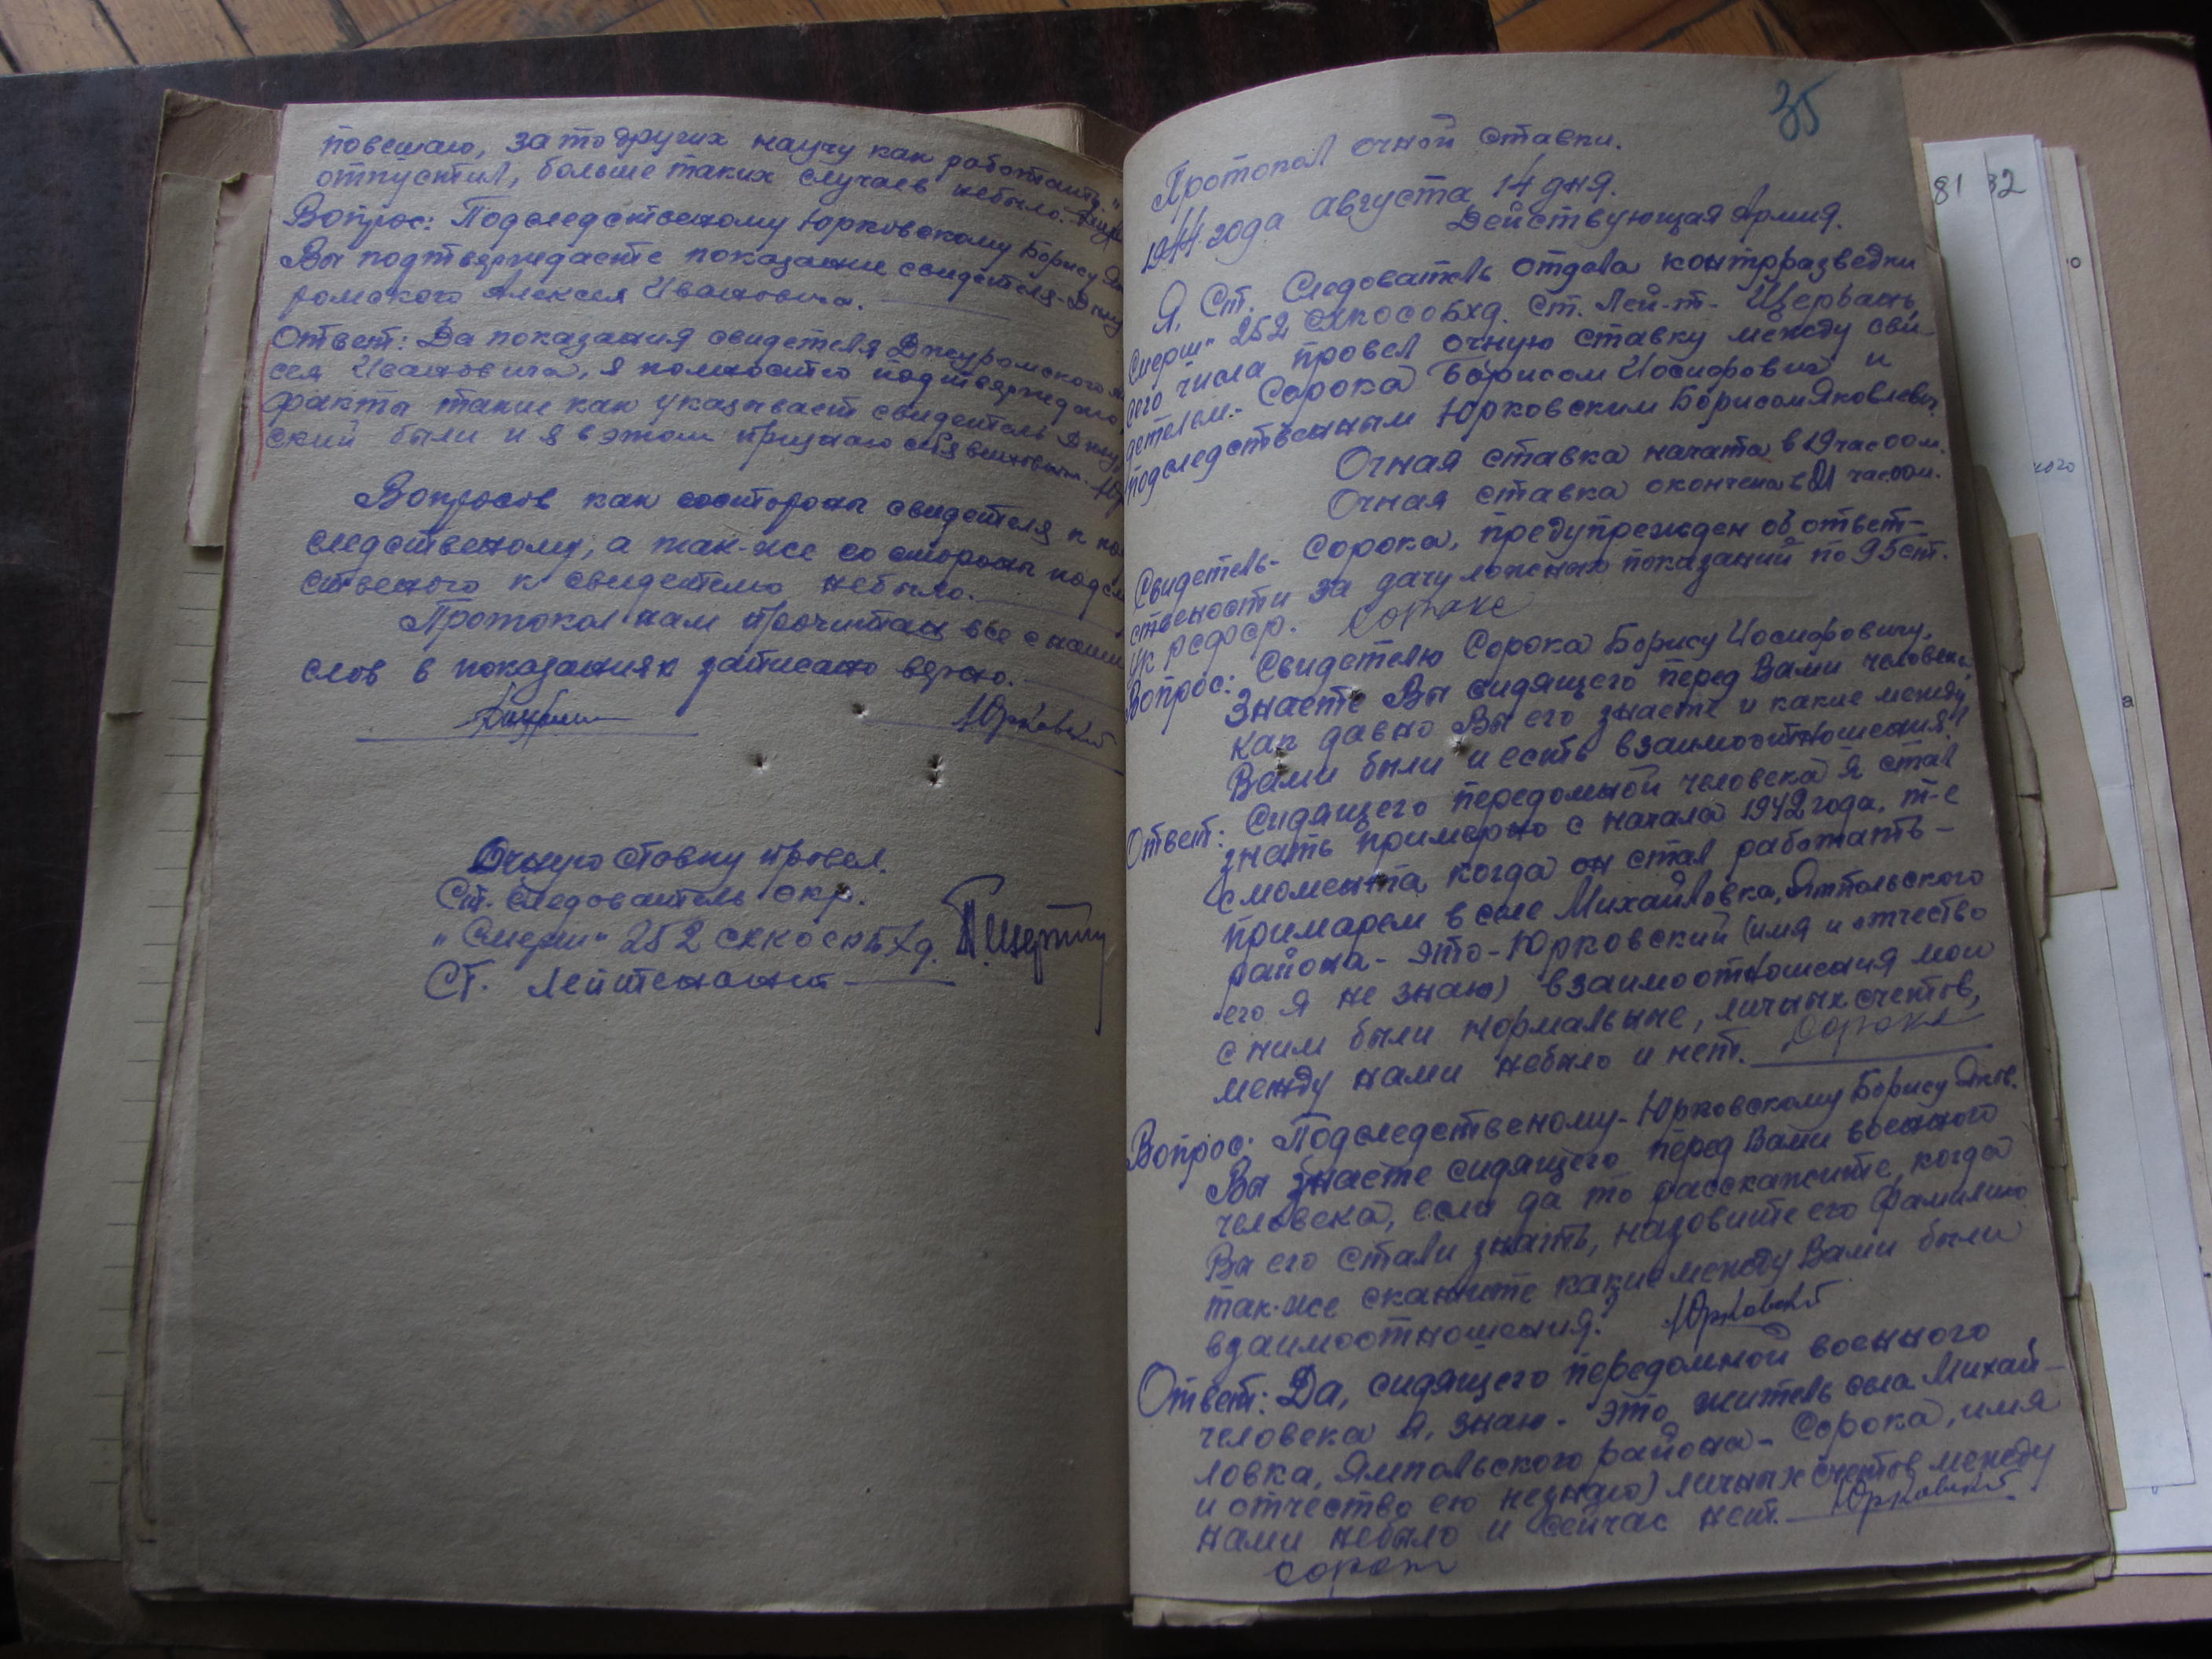 повешаю, зато других научу как работать"
отпустил, больше таких случаев небыло.
Вопрос: Подследственому Юрковскому Борису Як
Вы подтверждаете показание свидетеля - Джу
ромского Алексея Ивановича.
Ответ: Да показания свидетеля Джуромского
сея Ивановича, я полностью подтверждаю
факты такие как указывает свидетель Джу
ский были и я в этом признаю себя виновным. Юр
Вопросов как состороны свидетеля к по
следственому, а так-же со стороны подсл
ственого к свидетелю небыло.
Протокол нам прочитан все с наши
слов в показаниях записано верно.
Юрковский
Очную ставку провел.
Ст. Следователь окр.
"Смерш" 252 скк
Ст. Лейтенант
35
Протокол очной ставки.
1944 года августа 14 дня.
Действующая Армия.
Я, Ст. Следователь отдела контрразведки
Смерш" 252 Ст. Лей-т - Щербань
сего числа провел очную ставку между сви-
детелем - Сорока Борисом Иосифович и
подследственным Юрковским Борисом Яковлевич.
Очная ставка начата в 19 час 00 м.
Очная ставка окончена в 21 час 00 м.
Свидетель - Сорока, предупрежден об ответ-
ствености за дачу ложных показаний по 95 ст.
УК РСФСР. Сорока
Вопрос: Свидетелю Сорока Борису Иосифовичу,
Знаете Вы сидящего перед Вами человека
как давно Вы его знаете и какие между
Вами были и есть взаимоотношения?
Ответ: Сидящего передомной человека я стал
знать примерно с начала 1942 года, т-е
с момента когда он стал работать -
примарем в селе Михайловка, Ямпольского
района - это - Юрковский (имя и отчество
его я не знаю) взаимоотношения мои
с ним были нормальные, личных счетов,
между нами небыло и нет. Сорока
Вопрос: Подследственому - Юрковскому Борису Яков.
Вы знаете сидящего перед Вами военного
человека, если да то расскажите, когда
Вы его стали знать, назовите его фамилию
так-же скажите какие между Вами были
взаимоотношения? Юрковский
Ответ: Да, сидящего передомной военного
человека я, знаю - это житель села Михай-
ловка, Ямпольского района - Сорока, имя
и отчество его незнаю) личных счетов между
нами небыло и сейчас нет. Юрковский
Сорока
81
32
ного
о
а